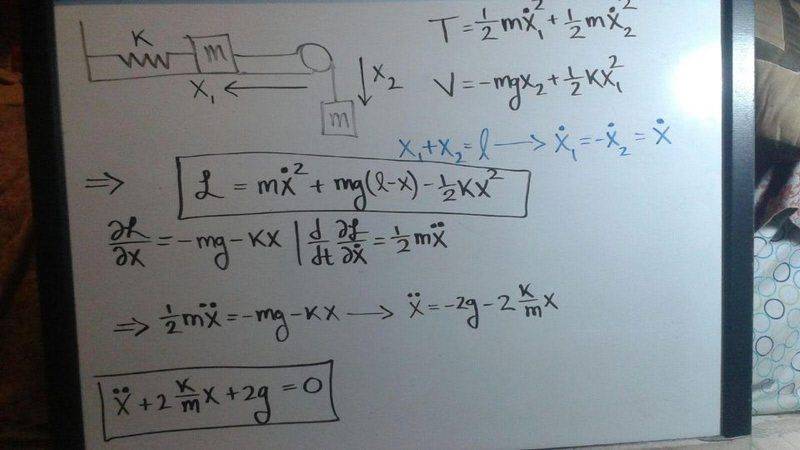 K m m
X₁ ← ↓ X₂
T = ½mẋ₁² + ½mẋ₂²
V = -mgx₂ + ½Kx₁²
x₁ + x₂ = l → ẋ₁ = -ẋ₂ = ẋ
⇒ ℒ = mẋ² + mg(l-x) - ½Kx²
∂ℒ/∂x = -mg - Kx | d/dt ∂ℒ/∂ẋ = ½mẍ
⇒ ½mẍ = -mg - Kx → ẍ = -2g - 2 K/m x
ẍ + 2 K/m x + 2g = 0